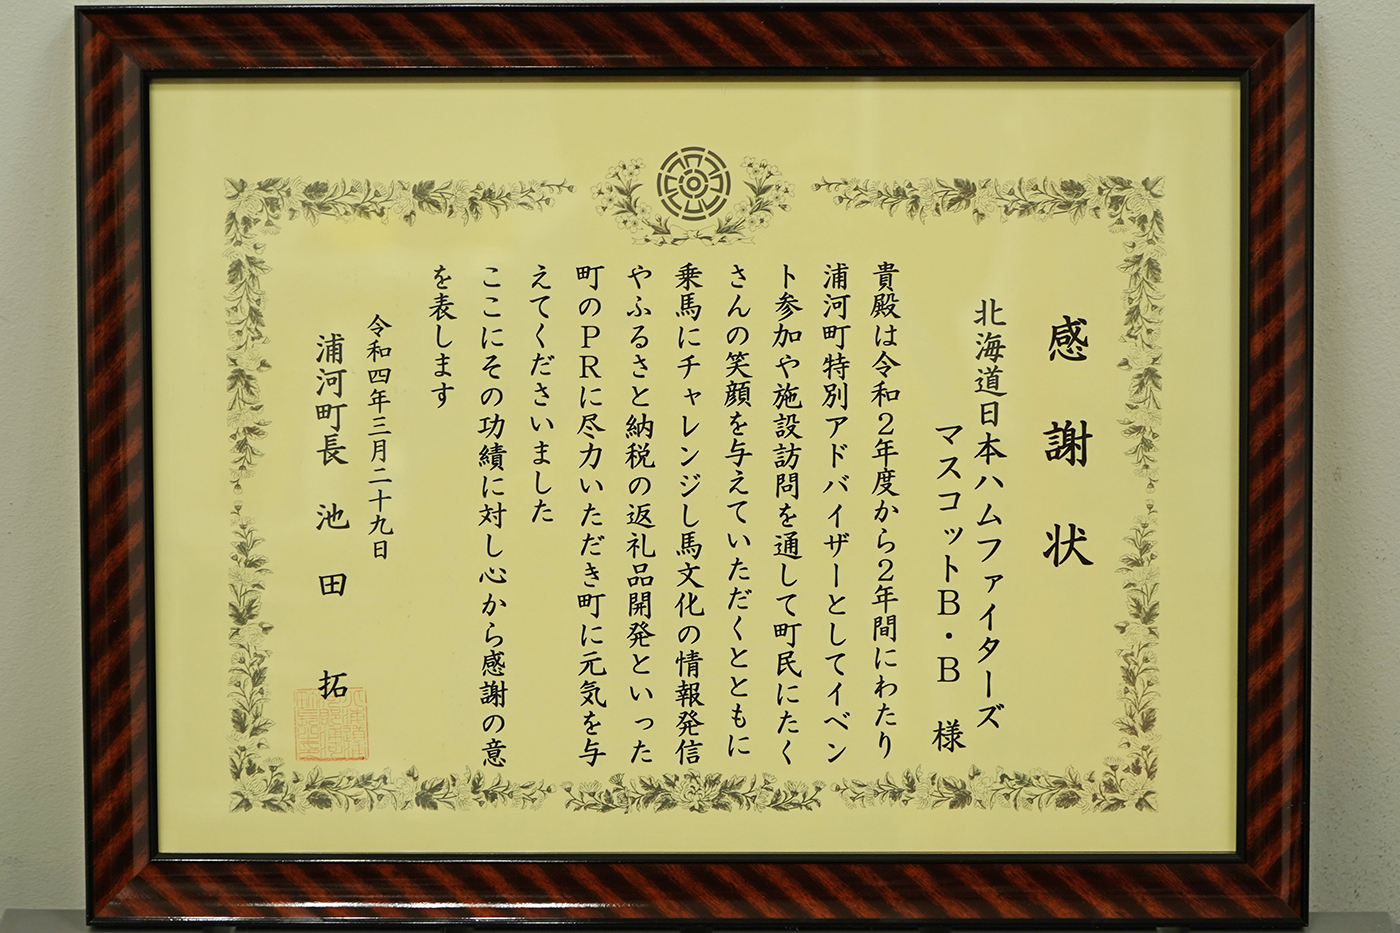 感謝状
北海道日本ハムファイターズ
マスコットB・B 様
貴殿は令和2年度から2年間にわたり
浦河町特別アドバイザーとしてイベン
ト参加や施設訪問を通して町民にたく
さんの笑顔を与えていただくとともに
乗馬にチャレンジし馬文化の情報発信
やふるさと納税の返礼品開発といった
町のPRに尽力いただき町に元気を与
えてくださいました
ここにその功績に対し心から感謝の意
を表します
令和四年三月二十九日
浦河町長 池田 拓